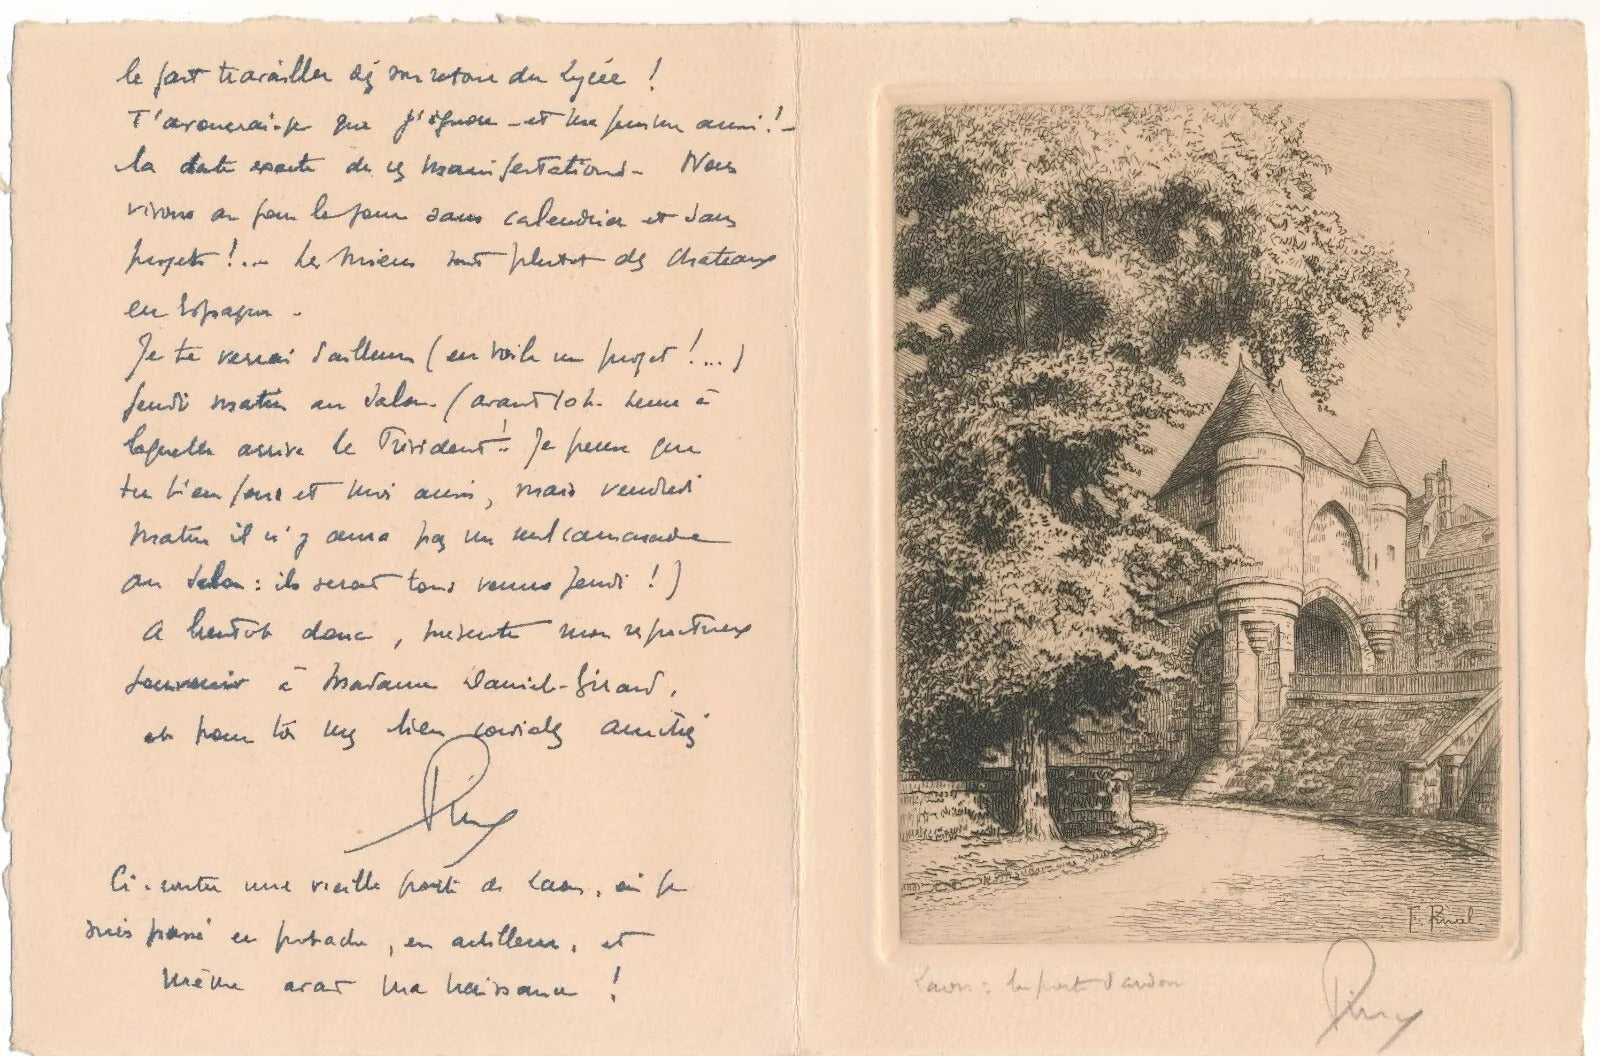 le fait travailler dès son retour du Lycée !
T'avouerai-je que j'ignore - et ma femme aussi ! -
la date exacte de ces manifestations - Nous
vivons au jour le jour sans calendrier et sans
projets ! ... Les miens sont plutôt des chateaux
en Espagne -
Je te verrai d'ailleurs (en voilà un projet ! ...)
Jeudi matin au Salon - (avant 10h. heure à
laquelle arrive le Président ! Je pense que
tu viendras et moi aussi, mais vendredi
matin il n'y aura pas un seul camarade
au Salon : ils seront tous venus Jeudi ! )
A bientôt donc, présente mon respectueux
souvenir à Madame Daniel-Girard,
et pour toi mes bien cordiales amitiés
Ci-contre une vieille porte de Laon, où je
suis passé en potache, en artilleur, et
même avant ma naissance !
Laon : la porte d'Ardon